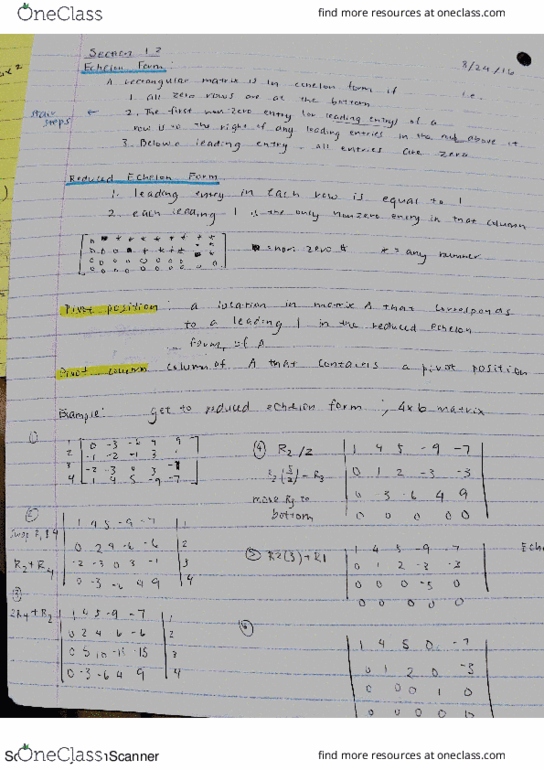 OneClass
find more resources at oneclass.com
Section 1.2
3/24/16
Echelon Form:
A rectangular matrix is in echelon form if
1. all zero rows are at the bottom
stair steps
2. The first non-zero entry (or leading entry) of a
row is to the right of any leading entries in the row above it
3. Below a leading entry, all entries are zero
Reduced Echelon Form
1. leading entry in each row is equal to 1
2. each leading 1 is the only nonzero entry in that column
■ = non zero # * = any number
Pivot position: a location in matrix A that corresponds
to a leading 1 in the reduced echelon
form of A
Pivot column column of A that contains a pivot position
Example: get to reduced echelon form ; 4x6 matrix
1)
1 0 -3 -6 4 9
2 -1 -2 -1 3 1
3 -2 -3 0 3 -1
4 1 4 5 -9 -7
④ R2/2
1 4 5 -9 -7
0 1 2 -3 -3
0 -3 -6 4 9
0 0 0 0 0
move R3 to
bottom
②
Swap R1 & 4
R2 + R4
1 4 5 -9 -7 1
0 2 4 -6 -6 2
-2 -3 0 3 -1 3
0 -3 -6 4 9 4
⑤ R2(3)+R1
1 4 5 -9 -7
0 1 2 -3 -3
0 0 0 -5 0
0 0 0 0 0
③
2R4+R2
1 4 5 -9 -7 1
0 2 4 6 -6 2
0 5 10 -15 -15 3
0 -3 -6 4 9 4
⑥
1 4 5 0 -7
0 1 2 0 -3
0 0 0 1 0
0 0 0 0
OneClass
Scanner
find more resources at oneclass.com